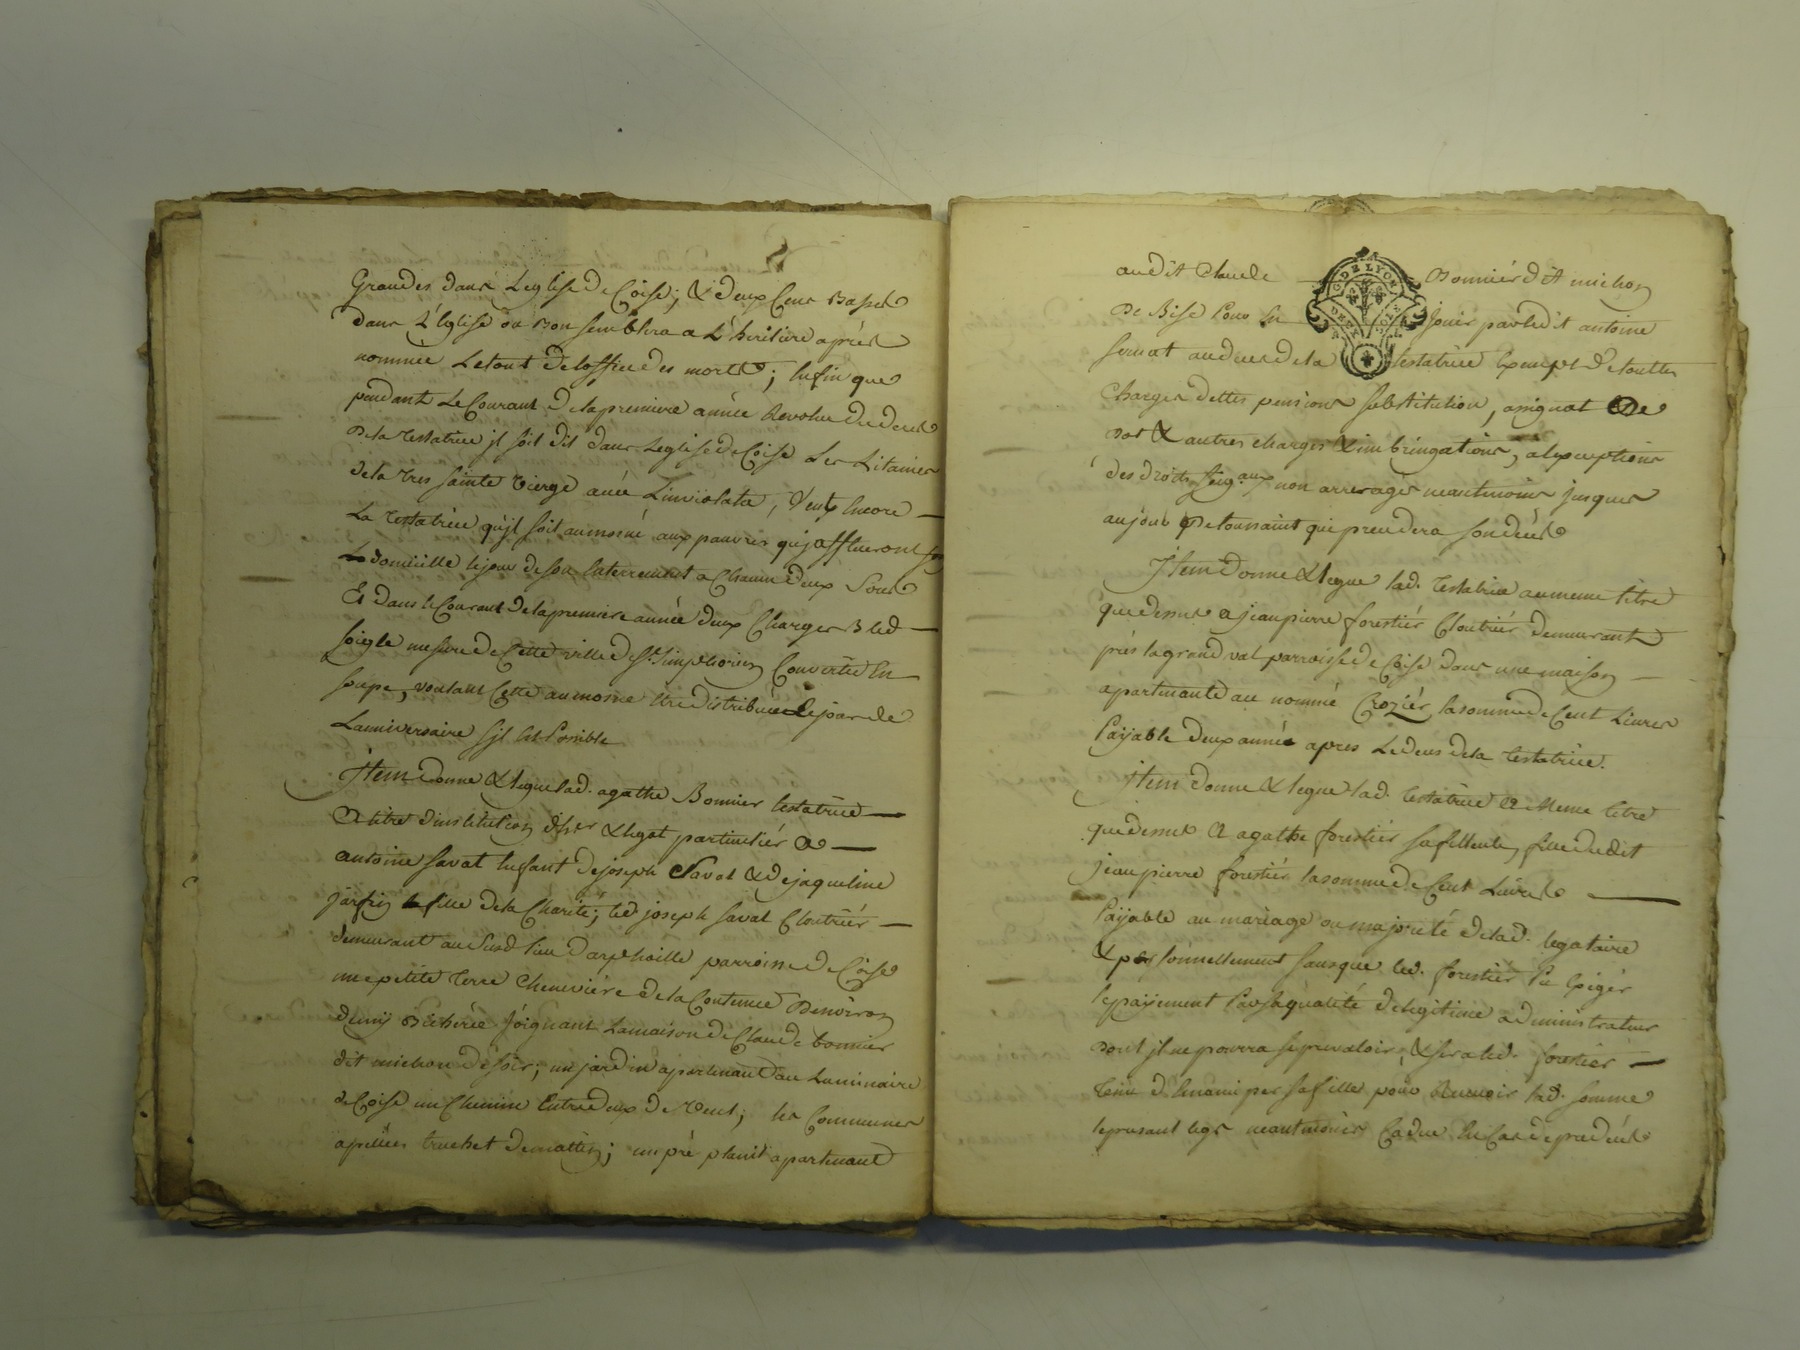 Grandes dans Leglise de Coise; & deux Cens Basses
dans L'Eglise ou Bon semblera a L'héritiere aprés
nommée Le tout de loffice des morts; Enfin que
pendant Le Courant de la premiere année Revolue du deces
De la Testatrice jl soit dit dans Leglise de Coise Les Litanies
de la Tres sainte vierge avec L'inviolata, Veut Encore
La Testatrice qu'jl soit aumosné aux pauvres qui afflueront
domicille le jour de son Enterrement a Chacun deux Sous
Et dans le Courant de la premiere année deux Charges Bled
soiegle mesure de Cette ville de St. Simphorien Convertie En
soupe, voulant Cette aumosne Etre distribuée Le jour de
Lanniversaire sjl Est Possible
Jtem donne & legue lad. agathe Bonnier testatrice
a titre d'institution d'her. & legat particuliér a
antoine savat Enfant de joseph Savat & de jaqueline
jarsin fille de la Charité; led. joseph savat Cloutriér
demeurant au Susd. lieu d'arphoille parroisse de Coise
une petite Terre Cheneviére de la Contenue Denviron
demy Bicherée joignant La maison de Claude bonnier
dit michon de soir; un jardin apartenant au Luminaire
de Coise un Chemin Entre deux de vent; les Communes
apellées truchet de mattin; un pré plant apartenant
audit Claude Bonniér dit michon
De Bise Pour En jouir par ledit antoine
savat au deces de la testatrice Exempt de toutes
Charges dettes pensions substitution, assignat de
Dot & autres charges & imbringations, a l'exception
des droits seig.aux non arreragés neantmoins jusques
au jour De toussaint qui prendera son décés
Jtem Donne & legue lad. Testatrice au meme titre
que dessus a jean pierre forestiér Cloutriér demeurant
prés la grand val parroisse de Coise dans une maison
apartenante au nommé Croziér, la somme de Cent Livres
Payable deux année apres Le deces de la testatrice.
Jtem donne & legue lad. testatrice a Meme titre
que dessus a agathe forestiér sa filleule, fille dudit
jean pierre forestiér la somme de Cent Livres
Payable au mariage ou majorité de lad. legataire
& personnellement sans que led. forestiér En Exigér
le payement Par sa qualité de legitime administrateur
Dont jl ne pourra se prevaloir, & sera led. forestier
tenu d'Emanciper sa fille pour Recevoir lad. somme
le present legs neantmoins Caduc En Cas de predécés
G. DE LYON
DEUX